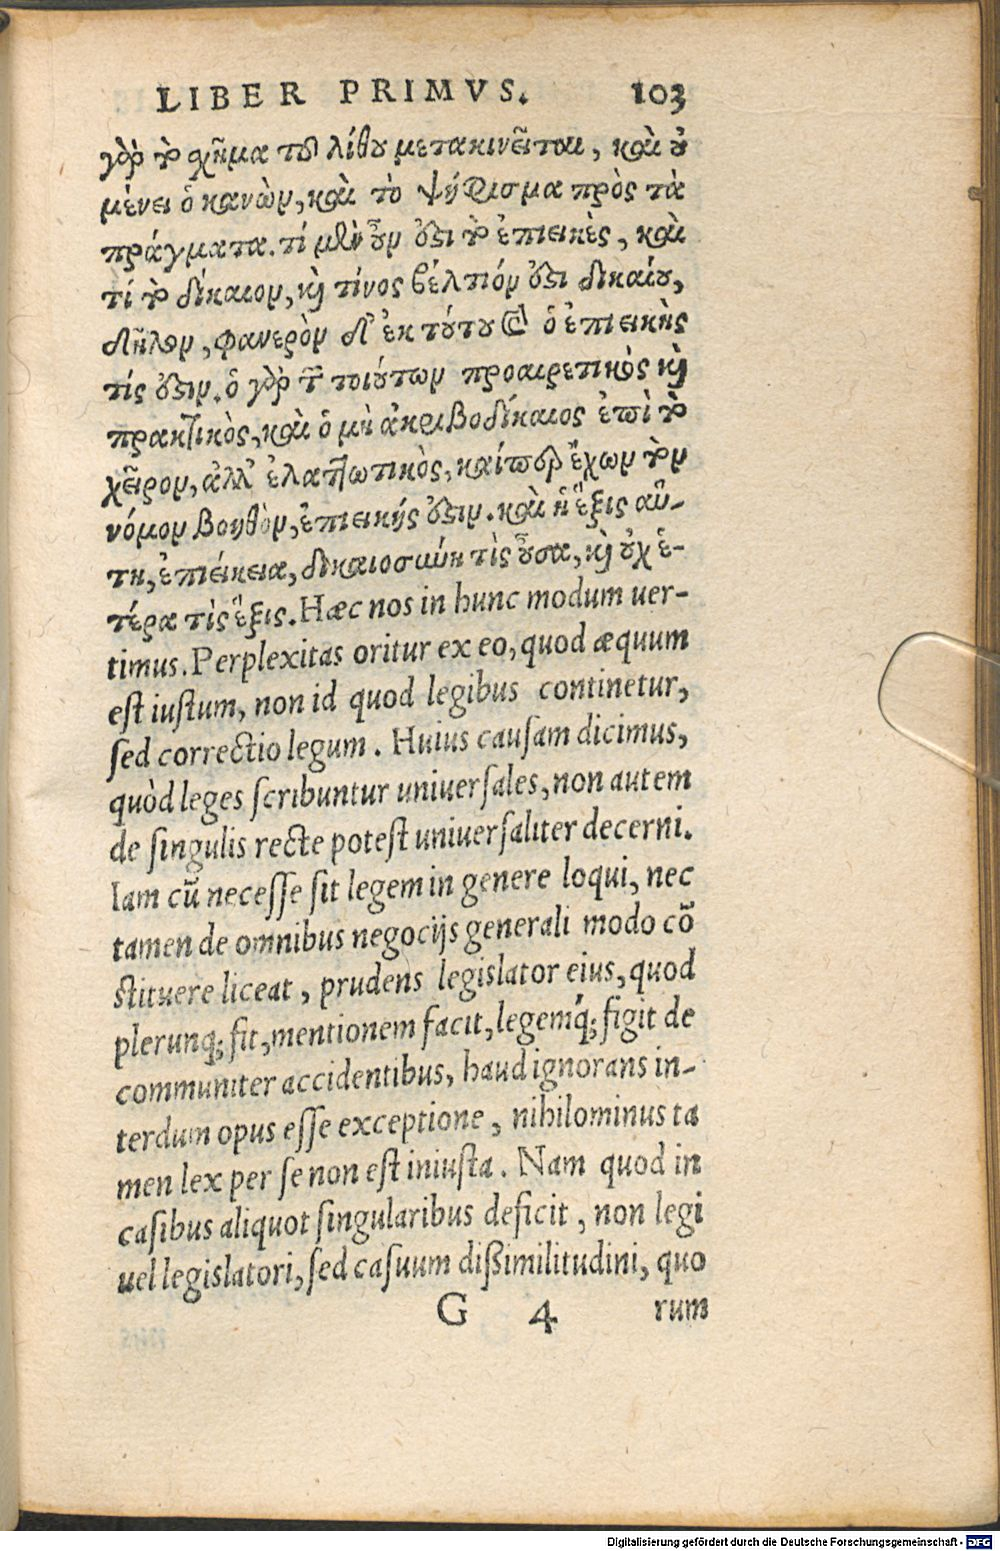 LIBER PRIMVS. 103
γὰρ τὸ σχῆμα τοῦ λίθου μετακινεῖται, καὶ οὐ
μένει ὁ κανὼν, καὶ τὸ ψήφισμα πρὸς τὰ
πράγματα. τί μὲν οὖν ἐστι τὸ ἐπιεικὲς, καὶ
τὶ τὸ δίκαιον, καὶ τίνος βέλτιόν ἐστι δικαίου,
δῆλον, φανερὸν δ' ἐκ τούτου καὶ ὁ ἐπιεικὴς
τίς ἐστιν. ὁ γὰρ τῶν τοιούτων προαιρετικὸς καὶ
πρακτικὸς, καὶ ὁ μὴ ἀκριβοδίκαιος ἐπὶ τὸ
χεῖρον, ἀλλ' ἐλαττωτικὸς, καίπερ ἔχων τὸν
νόμον βοηθὸν, ἐπιεικής ἐστιν. καὶ ἡ ἕξις αὕ-
τη, ἐπιείκεια, δικαιοσύνη τὶς οὖσα, καὶ οὐχ ἑ-
τέρα τὶς ἕξις. Hæc nos in hunc modum uer-
timus. Perplexitas oritur ex eo, quod æquum
est iustum, non id quod legibus continetur,
sed correctio legum. Huius causam dicimus,
quòd leges scribuntur uniuersales, non autem
de singulis recte potest uniuersaliter decerni.
Iam cũ necesse sit legem in genere loqui, nec
tamen de omnibus negocijs generali modo cõ
stituere liceat, prudens legislator eius, quod
plerunq; fit, mentionem facit, legemq́; figit de
communiter accidentibus, haud ignorans in-
terdum opus esse exceptione, nihilominus ta
men lex per se non est iniusta. Nam quod in
casibus aliquot singularibus deficit, non legi
uel legislatori, sed casuum dißimilitudini, quo
G 4 rum
Digitalisierung gefördert durch die Deutsche Forschungsgemeinschaft - DFG